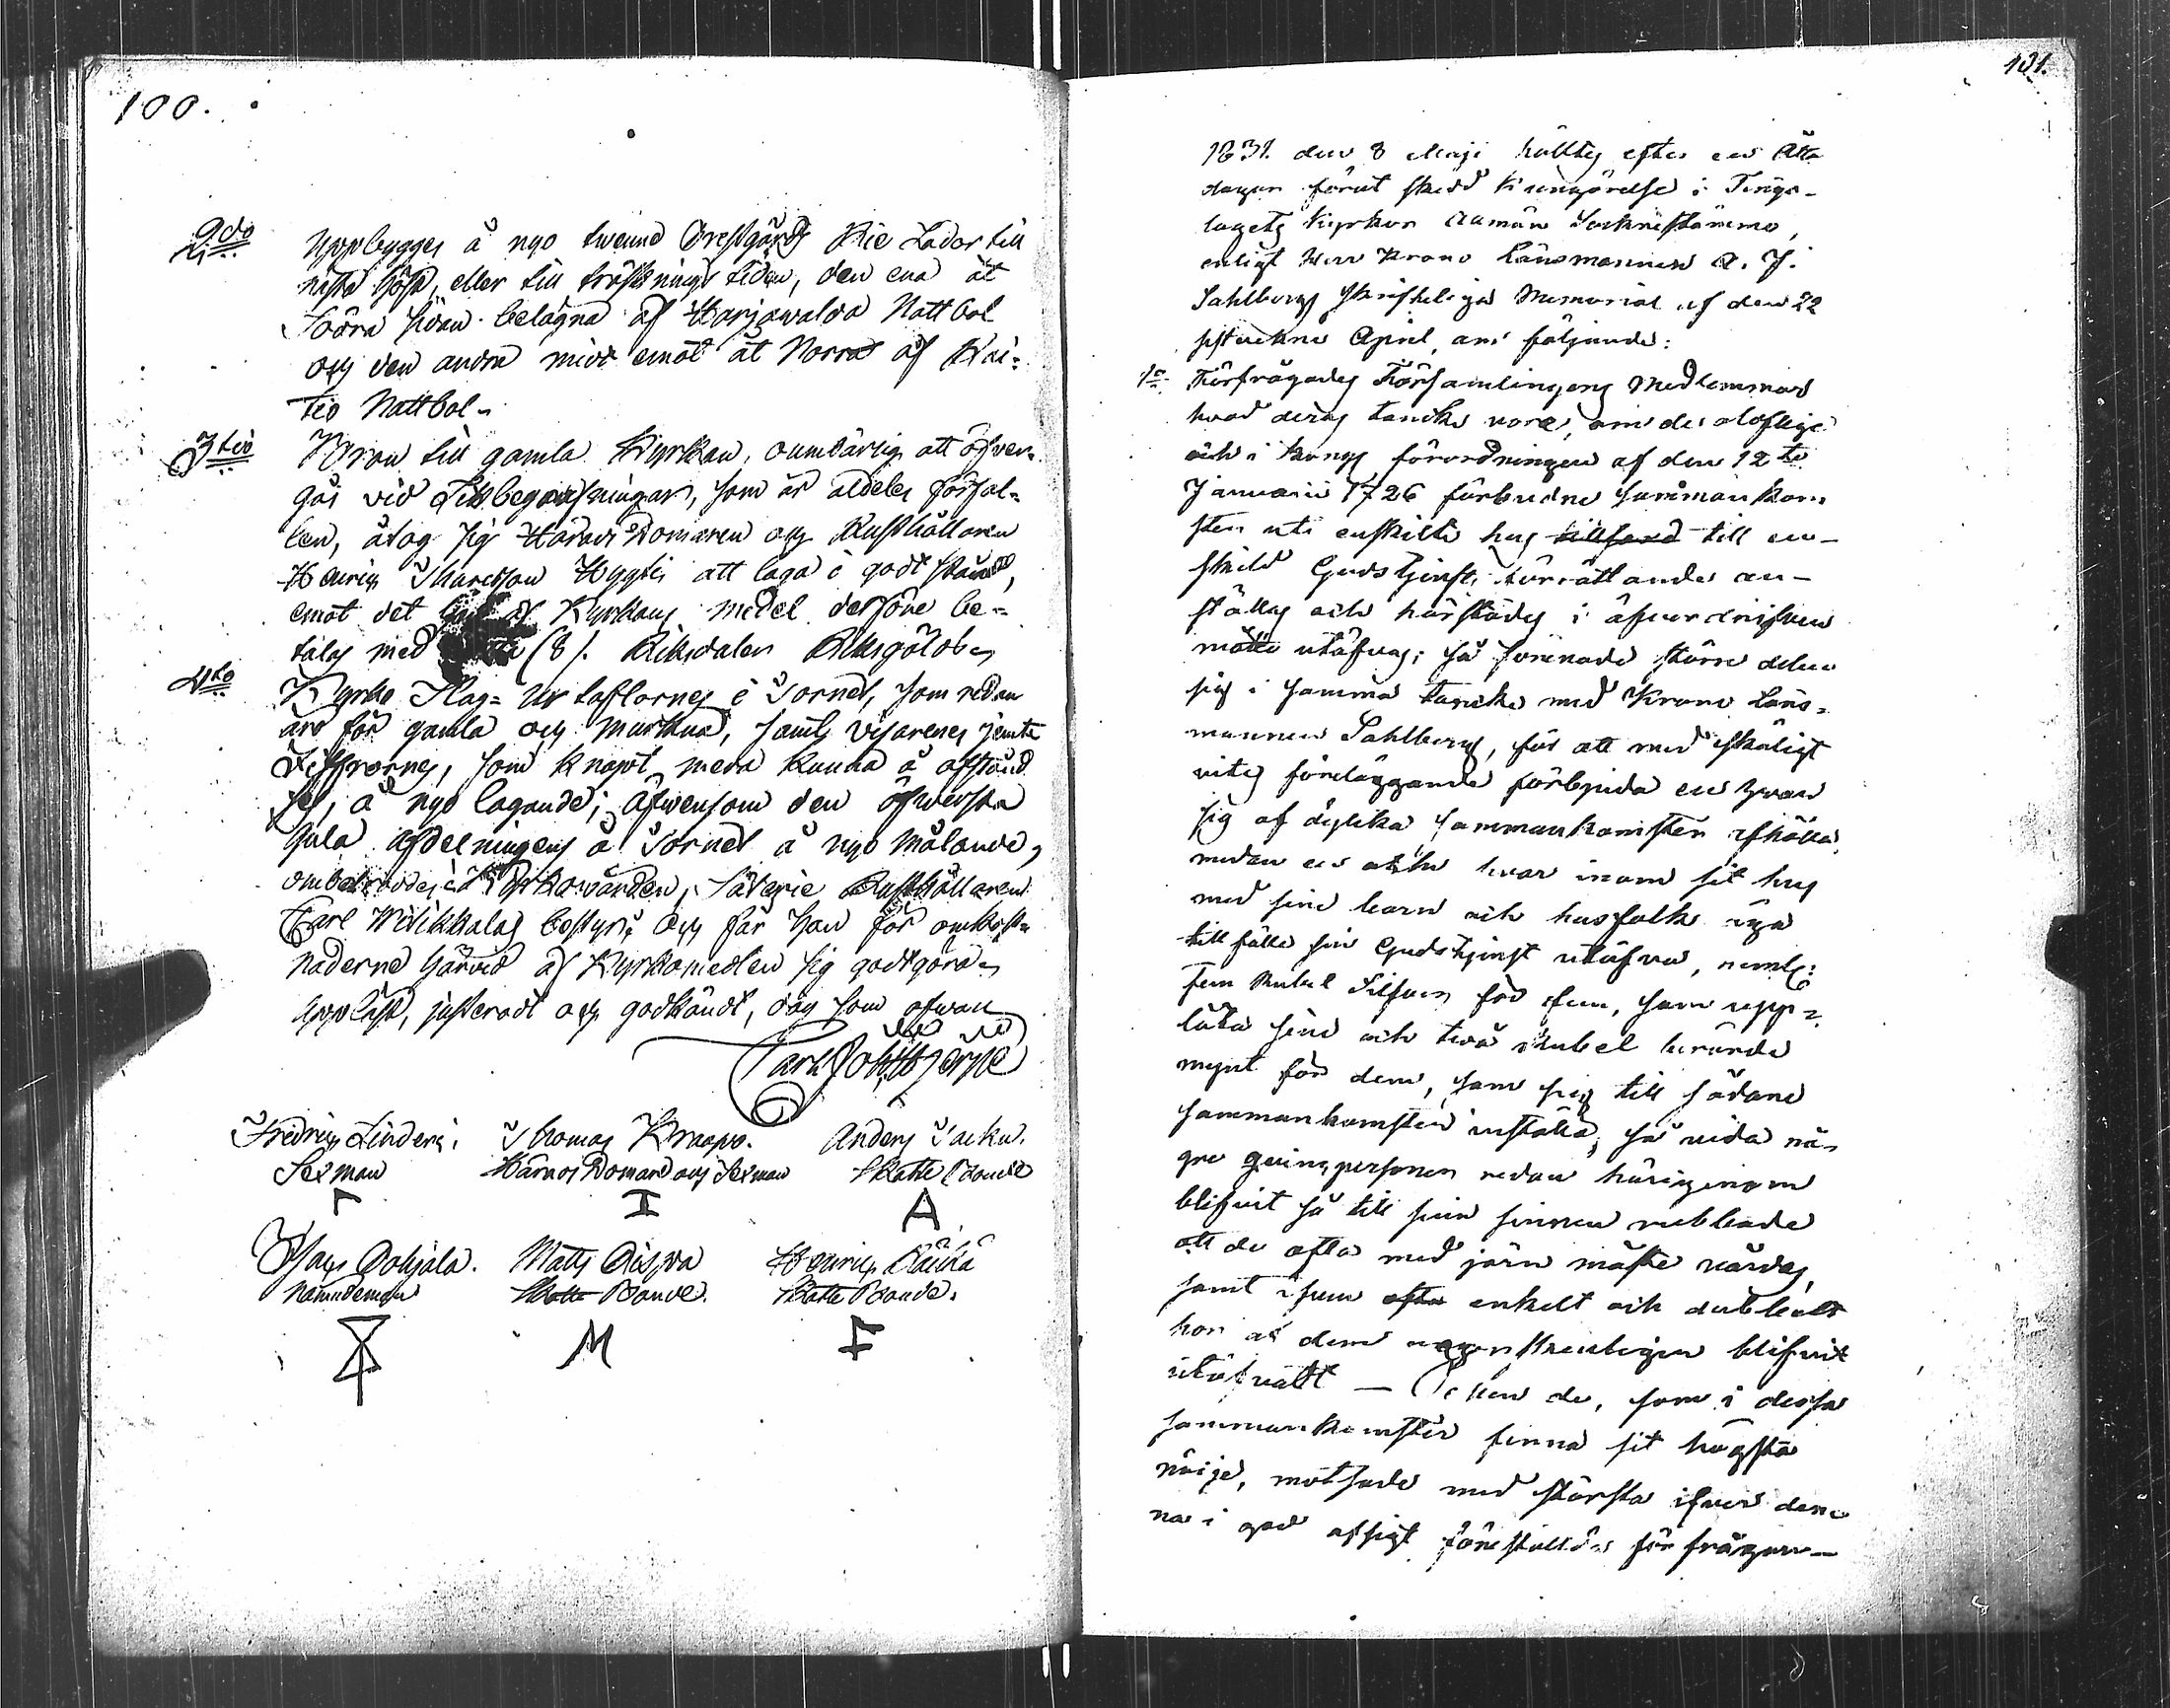 100.
2do Uppbygges å nyo twenne Prestgårds Rie Lador till
nästa höst, eller till tröskningstiden, den ena åt
Södra sidan belägna af Harjawalda Nattbol
och den andra midt emot åt Norra af Kai-
tio Nattbol.
3tio Wron till gamla Kyrkan, oumbärlig att öfver
gås vid Likbegrafningar, som är aldeles förfal-
len, åtog sig Härads Domaren och Rusthållaren
Henrich Thomasson Hygtis att laga i godt stånd,
emot det af Kyrkans medel derföre be-
talas med (8). Riksdaler Riksgälds
4to Kyrko Slag-Ur taflornes i Tornet, som redan
äro för gamla och murkna, samt visarenes jemte
Ziffrornes, som knapt mera kunna å afstånd
ses, å nyo lagande; äfwensom den öfwersta
gula afdelningens å Tornet å nyo målande,
ombetroddes Kyrkovärden, Säterie Rusthållaren
Carl Wilikkalas bestyr; och får han för omkost-
naderne härvid af Kyrkomedlen sig godtgöra.
Uppläst, justeradt och godkändt, dag som ofwan
Fredrich Linderi. Thomas Knaapi. Anders Jacku.
Sexman Härads Domare och Sexman Skatte Bonde
I A
Pohjala. Matts Henrich
Nämndeman Skatte Bonde. Skatte Bonde.
M F
101.
1831. den 8 Maji hölltes efter en Åtta
dagar förut skedd kungörelse i Tings-
lagets Kyrkor Allmän Sockenstämma,
enligt Herr Krono Länsmannen A. J.
Sahlbergs skriftliga Memorial af den 22
sistvekne April, om följande:
1o Förfrågades Församlingens Medlemmar
hvad deras tancka vore, om de oloflige
och i Kongl förordningen af den 12te
Januarii 1726 förbudne samman kom
ster uti enskilte hus till en-
skild Gudstjensts förrättande an-
ställas och härstädes i
måtto utöfvas; så förenade större delen
sig i samma tancka med Krono Läns-
mannen Sahlberg, för att med skäligt
vites föreläggande förbjuda en hvar
sig af dylika sammankomster afhålla,
medan en och hvar inom sit hus
med sine barn och husfolk äga
tillfälle sin Gudstjenst utöfva, neml:
fem Rubel Silfver för dem, som upp-
låta sine och två Rubel berörde
mynt för dem, som sig till sådane
sammankomster inställa, så vida nå-
gre personer redan härigenom
blifvit så till sine sinnen rubbade
att de ofta med järn måste vårdas,
samt äfven enkelt och dubbelt
hor af dem blifvit
utöfvadt — Men de, som i dessa
sammankomster finna sit högsta
nöije, motsade med största ifver den-
na i god afsigt förestälda förfrågan—